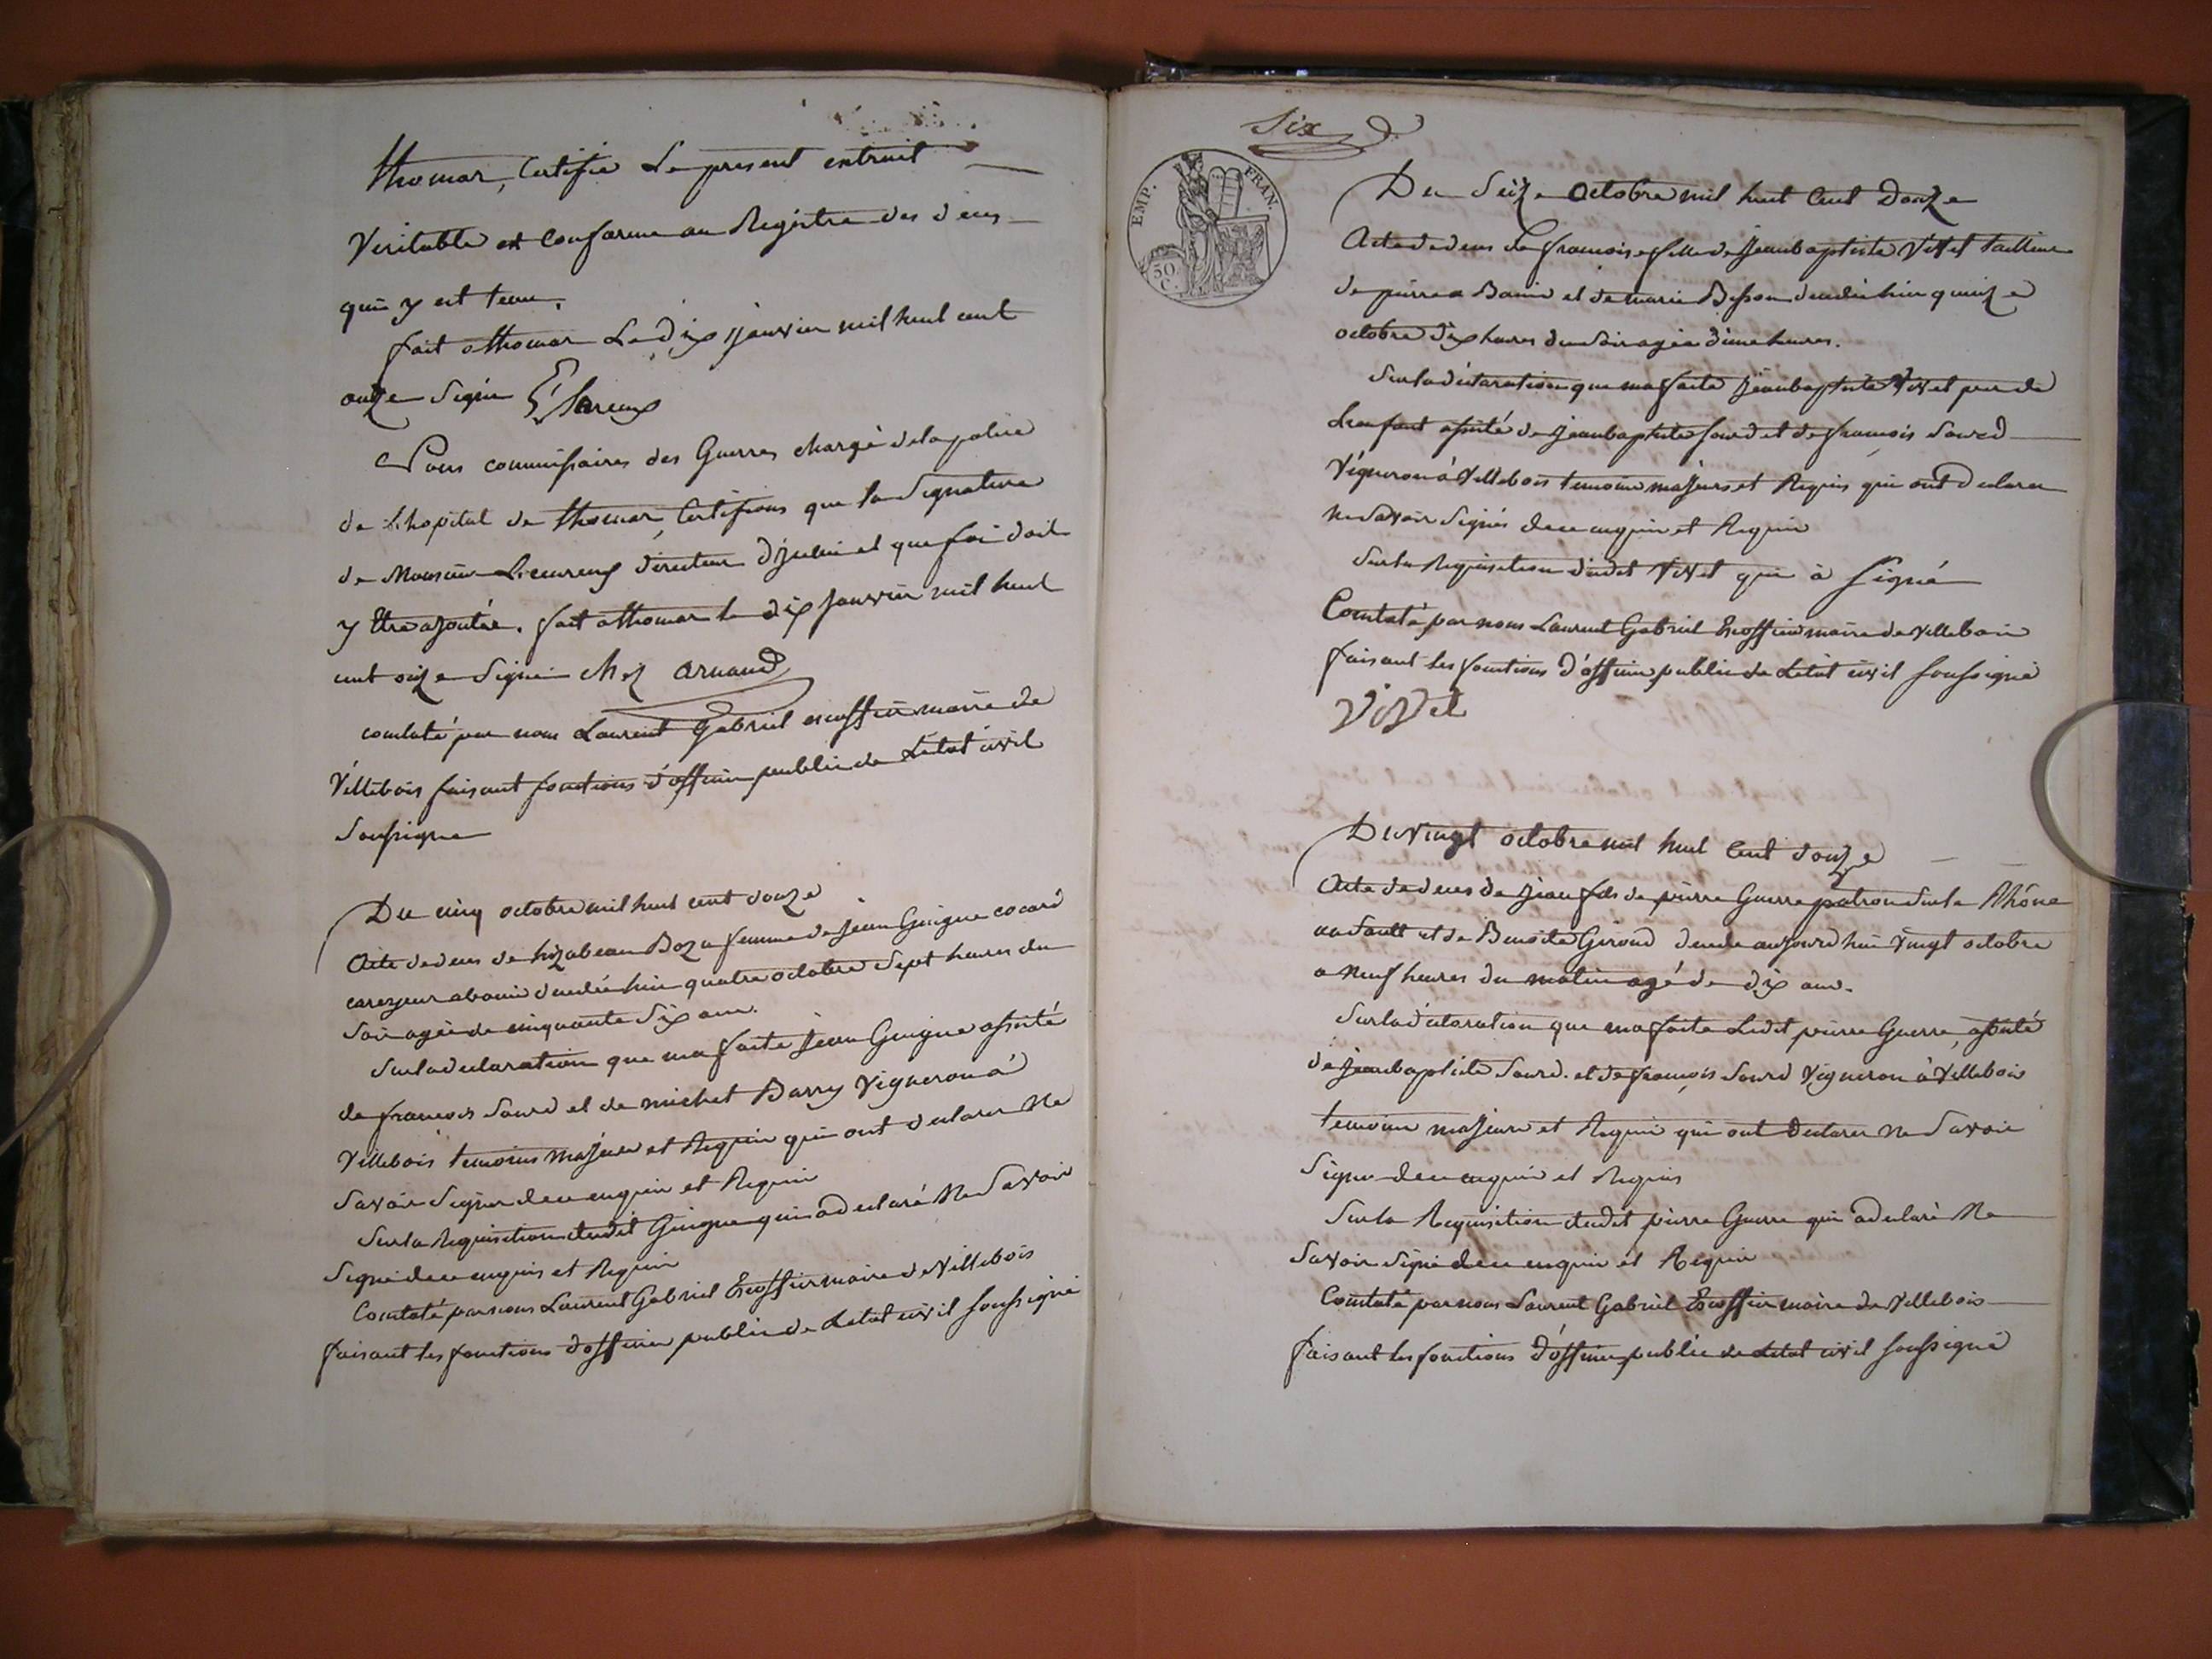 thomar, Certifie Le present extrait
Veritable et Conforme au Registre des deces
qui y est tenu.
fait a thomar Le dix janvier mil huit cent
onze Signé
Nous commissaires des Guerres chargé de la police
de L'hopital de thomar, Certifions que la Signature
de Monsieur directeur et que foi doit
y être ajoutée. fait a thomar le dix janvier mil huit
cent onze Signé Chez Arnaud
constaté par nous Laurent Gabriel escoffier maire de
Villebois faisant fonctions d'officier public de L'état civil
Soussigne
Du cinq octobre mil huit cent douze
Acte de deces de Boza femme de Jean Guigue cocard
decedée hier quatre octobre Sept heures du
Soir agée de cinquante Six ans.
Sur la declaration que ma faite Jean Guigue assisté
de francois Sourd et de michel Barry Vigneron à
Villebois temoins majeur et Requis qui ont declarer Ne
Savoir Signer de ce enquis et Requis
Sur la Requisition dudit Guigue qui a declaré Ne Savoir
Signé de ce enquis et Requis
Constaté par nous Laurent Gabriel Escoffier maire de Villebois
faisant les fonctions d'officier public de Letat civil soussigné
Six
EMP. FRAN.
50 C.
Du Seize Octobre mil huit Cent Douze
Acte de deces de francoise fille de Jean baptiste Vittet tailleur
de pierre a Bouis et de marie Besson decedée hier quinze
octobre dix heures du Soir agée d'une heures.
Sur la déclaration que ma faite Jean baptiste Vittet pere de
L'enfant assisté de Jean baptiste Sourd et de francois Sourd
Vigneron à Villebois temoins majeurs et Requis qui ont declarer
Ne Savoir Signés de ce enquis et Requis
Sur la Requisition dudit Vittet qui à Signé
Constaté par nous Laurent Gabriel Escoffier maire de Villebois
faisant les fonctions d'officier public de Létat civil soussigné
Vittet
Du Vingt octobre mil huit Cent douze
Acte de deces de Jean fils de pierre Guerre patron Sur le Rhône
au Sault et de Benoite Giroud decedé aujourd'hui Vingt octobre
a Neuf heures du matin agé de dix ans.
Sur la déclaration que ma faite Ledit pierre Guerre, assisté
de Jean baptiste Sourd. et de françois Sourd Vigneron à Villebois
temoins majeurs et Requis qui ont declarer Ne Savoir
Signer de ce enquis et Requis
Sur la Requisition dudit pierre Guerre qui a declaré Ne
Savoir Signé de ce enquis et Requis
Constaté par nous Laurent Gabriel Escoffier maire de Villebois
faisant les fonctions d'officier public de Létat civil soussigné